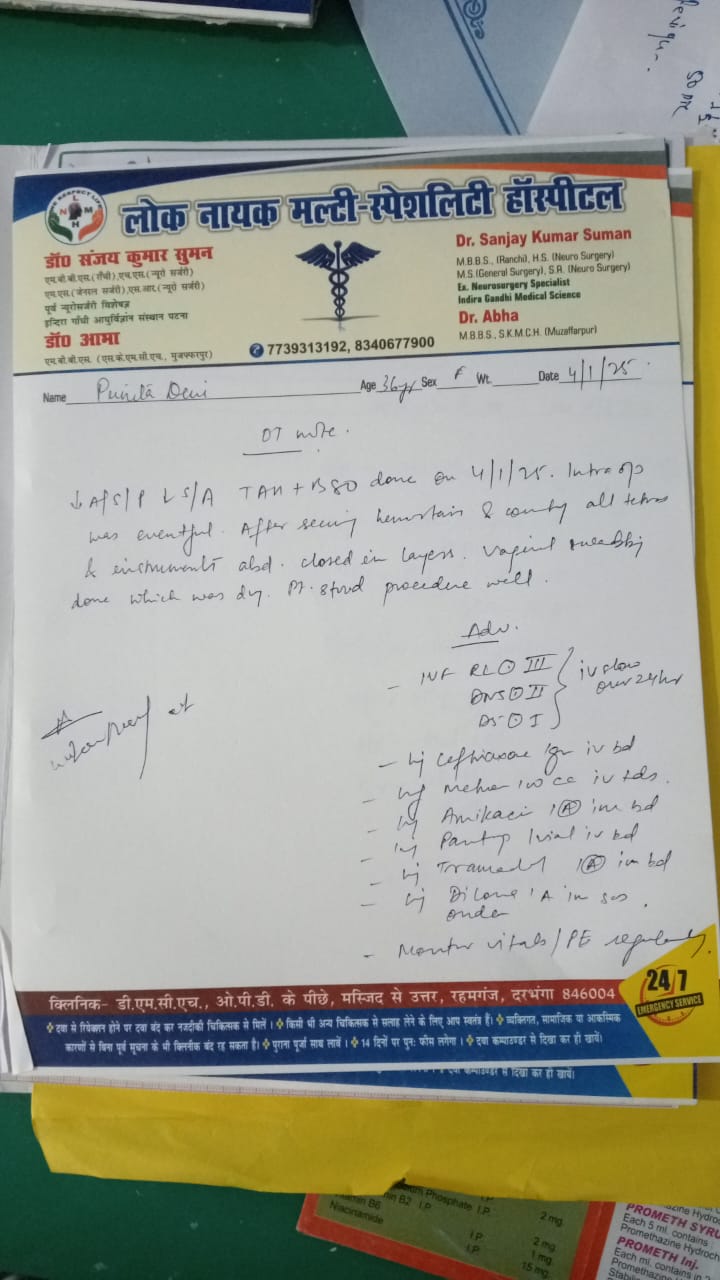 लोक नायक मल्टी-स्पेशलिटी हॉस्पीटल
डॉ० संजय कुमार सुमन
एम.बी.बी.एस.(राँची),एच.एस.(न्यूरो सर्जरी)
एम.एस.(जेनरल सर्जरी),एस.आर.(न्यूरो सर्जरी)
पूर्व न्यूरोसर्जरी विशेषज्ञ
इन्दिरा गाँधी आयुर्विज्ञान संस्थान पटना
डॉ० आभा
एम.बी.बी.एस. (एस.के.एम.सी.एच., मुजफ्फरपुर)
Dr. Sanjay Kumar Suman
M.B.B.S., (Ranchi), H.S. (Neuro Surgery)
M.S.(General Surgery), S.R. (Neuro Surgery)
Ex. Neurosurgery Specialist
Indira Gandhi Medical Science
Dr. Abha
M.B.B.S., S.K.M.C.H. (Muzaffarpur)
7739313192, 8340677900
Name Punita Devi Age 36yr Sex F Wt. Date 4/1/25
OT note.
↓ A/S/P L S/A TAH + BSO done on 4/1/25. Intra op
was eventful. After hemostasis & all
& instruments abd. closed in layers. Vaginal
done which was dry. Pt. stood procedure well.
Adv.
- Inf RL III
DNS II
D5 I
iv slow
over 24hr
- Inj Ceftriaxone 1gm iv bd
- Inj Metro 100 cc iv tds.
- Inj Amikacin 1 A im bd
- Inj Pantop 1 vial iv bd
- Inj Tramadol 1 A im bd
- Inj 1 A im sos
order
- Monitor vitals / PE regularly.
24/7
EMERGENCY SERVICE
क्लिनिक- डी.एम.सी.एच., ओ.पी.डी. के पीछे, मस्जिद से उत्तर, रहमगंज, दरभंगा 846004
दवा से रियेक्शन होने पर दवा बंद कर नजदीकी चिकित्सक से मिलें । किसी भी अन्य चिकित्सक से सलाह लेने के लिए आप स्वतंत्र हैं। व्यक्तिगत, सामाजिक या आकस्मिक
कारणों से बिना पूर्व सूचना के भी क्लिनीक बंद रह सकता है। पुराना पूर्जा साथ लावें । 14 दिनों पर पुनः फीस लगेगा । दवा कम्पाउण्डर से दिखा कर ही खायें।
दवा कम्पाउण्डर से दिखा कर ही खायें।
Phosphate I.P.
Vitamin B6
Niacinamide
I.P.
I.P.
2 mg
2 mg
1 mg
15 mg
PROMETH SYRU
Each 5 ml. contains
Promethazine Hydroch
PROMETH Inj.
Each ml. contains